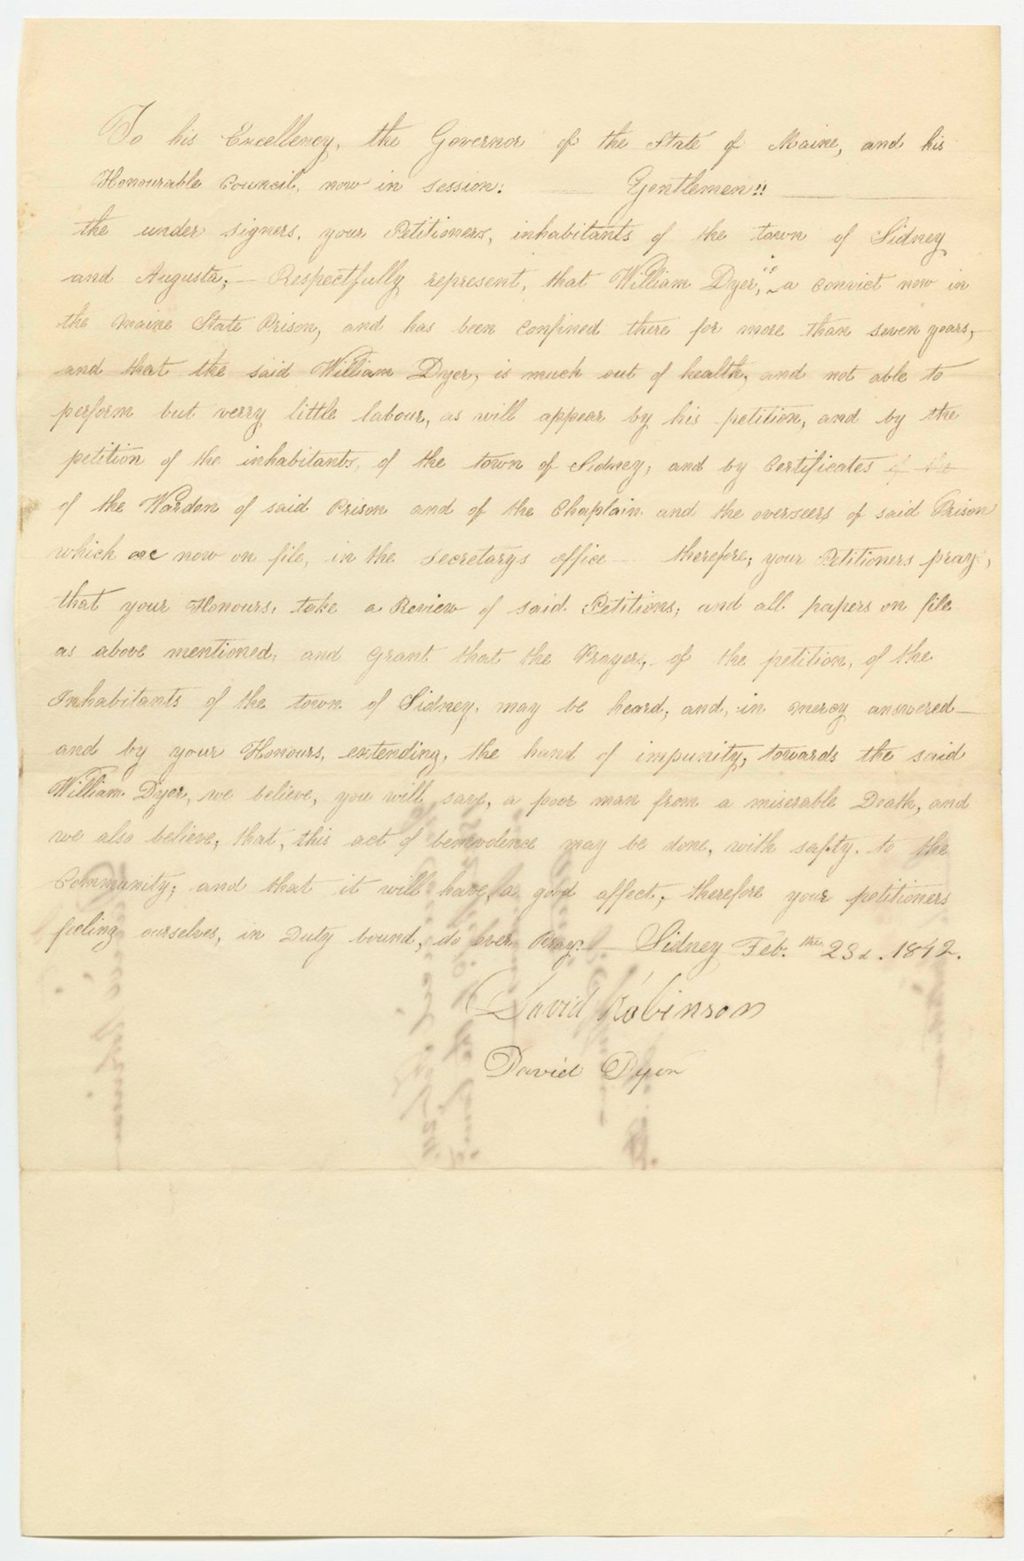 To his Excellency, the Governor of the State of Maine, and his
Honourable Council, now in session: Gentlemen!!
the under signers, your Petitioners, inhabitants of the town of Sidney
and Augusta; — Respectfully represent, that William Dyer, is a Convict now in
the Maine State Prison, and has been confined there for more than seven years,
and that the said William Dyer, is much out of health, and not able to
perform but verry little labour, as will appear by his petition, and by the
petition of the inhabitants, of the town of Sidney, and by Certificates of the
of the Warden of said Prison and of the Chaplain and the overseers of said Prison
which are now on file, in the Secretarys office — therefore, your Petitioners pray,
that your Honours, take a Review of said Petitions, and all papers on file
as above mentioned, and Grant that the Prayer, of the petition, of the
Inhabitants of the town of Sidney, may be heard, and, in mercy answered —
and by your Honours, extending, the hand of impunity, towards the said
William Dyer, we believe, you will save, a poor man from a miserable Death, and
we also believe, that, this act of benevolence may be done, with safty. to the
Community; and that it will have, a good affect, therefore your petitioners
feeling ourselves, in Duty bound, do ever Pray. — Sidney Feb. the 23d. 1842.
David Robinson
David Dyer